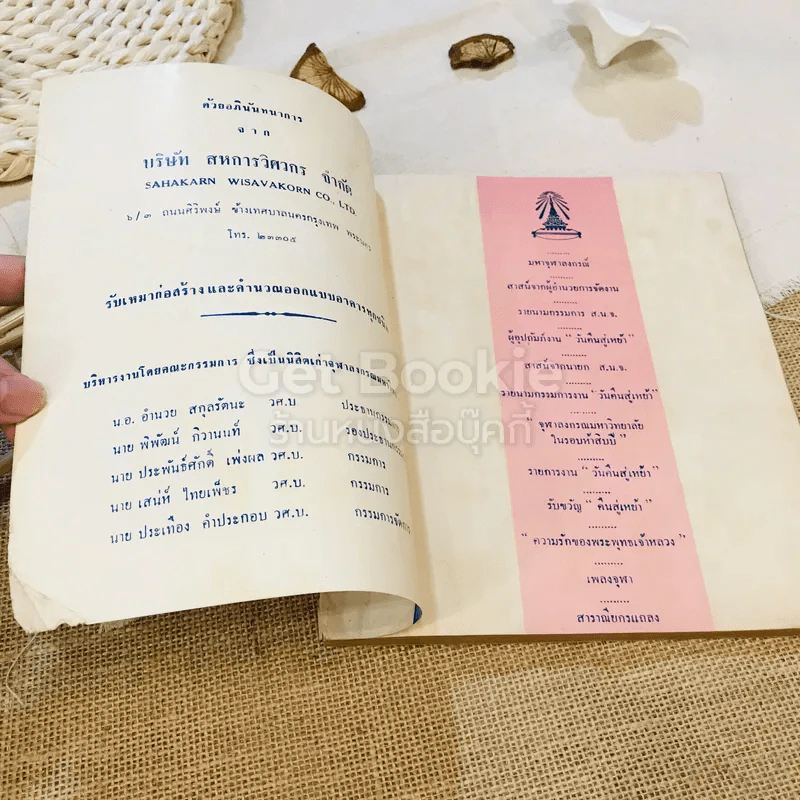 ด้วยอภินันทนาการ
จาก
บริษัท สหการวิศวกร จำกัด
SAHAKARN WISAVAKORN CO., LTD.
๖/๓ ถนนศิริพงษ์ ข้างเทศบาลนครกรุงเทพ พระนคร
โทร. ๒๓๓๐๕
รับเหมาก่อสร้าง และคำนวณออกแบบอาคารทุกชนิด
บริหารงานโดยคณะกรรมการ ซึ่งเป็นนิสิตเก่าจุฬาลงกรณ
น.อ. อำนวย สกุลรัตนะ วศ.บ ประธานกรรมการ
นาย พิพัฒน์ กิวานนท์ วศ.บ รองประธานกรรมการ
นาย ประพันธ์ศักดิ์ เพ่งผล วศ.บ. กรรมการ
นาย เสน่ห์ ไทยเพ็ชร วศ.บ. กรรมการ
นาย ประเทือง คำประกอบ วศ.บ. กรรมการจัดการ
มหาจุฬาลงกรณ์
สาสน์จากผู้อำนวยการจัดงาน
รายนามกรรมการ ส.น.จ.
ผู้อุปถัมภ์งาน “ วันคืนสู่เหย้า ”
สาสน์จากนายก ส.น.จ.
รายนามกรรมการงาน “ วันคืนสู่เหย้า ”
“ จุฬาลงกรณมหาวิทยาลัย
ในรอบห้าสิบปี ”
รายการงาน “ วันคืนสู่เหย้า ”
รับขวัญ “ คืนสู่เหย้า ”
“ ความรักของพระพุทธเจ้าหลวง ”
เพลงจุฬา
สาราณียกรแถลง
Get Bookie
ร้านหนังสือบุ๊คกี้